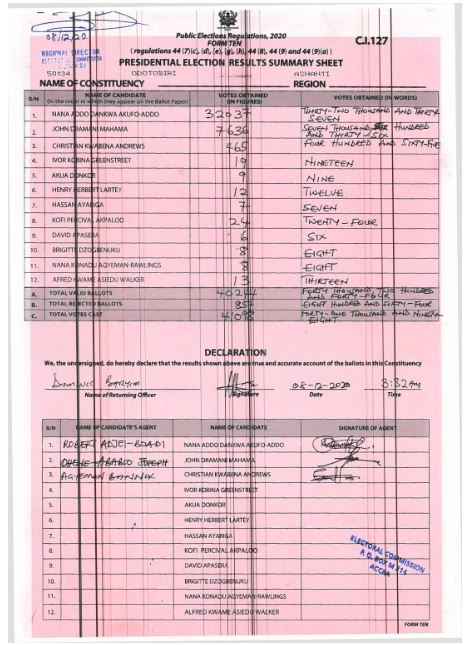 08/12/20
Public Elections Regulations, 2020
FORM TEN
C.I.127
( regulations 44 (7)(c), (d), (e), (g), (h), 44 (8), 44 (9) and 44 (9)(a) )
REGIONAL DIRECTOR
PRESIDENTIAL ELECTION RESULTS SUMMARY SHEET
50134 ODOTOBIRI ASHANTI
NAME OF CONSTITUENCY REGION
S/N NAME OF CANDIDATE (In the order in which they appear on the Ballot Paper) VOTES OBTAINED (IN FIGURES) VOTES OBTAINED (IN WORDS)
1. NANA ADDO DANKWA AKUFO-ADDO 32037 THIRTY-TWO THOUSAND AND THIRTY SEVEN
2. JOHN DRAMANI MAHAMA 7636 SEVEN THOUSAND SIX HUNDRED AND THIRTY-SIX
3. CHRISTIAN KWABENA ANDREWS 465 FOUR HUNDRED AND SIXTY-FIVE
4. IVOR KOBINA GREENSTREET 19 NINETEEN
5. AKUA DONKOR 9 NINE
6. HENRY HERBERT LARTEY 12 TWELVE
7. HASSAN AYARIGA 7 SEVEN
8. KOFI PERCIVAL AKPALOO 24 TWENTY-FOUR
9. DAVID APASERA 6 SIX
10. BRIGITTE DZOGBENUKU 8 EIGHT
11. NANA KONADU AGYEMAN-RAWLINGS 8 EIGHT
12. AFRED KWAME ASIEDU WALKER 13 THIRTEEN
A. TOTAL VALID BALLOTS 40244 FORTY THOUSAND, TWO HUNDRED AND FORTY-FOUR
B. TOTAL REJECTED BALLOTS 854 EIGHT HUNDRED AND FIFTY-FOUR
C. TOTAL VOTES CAST 41098 FORTY-ONE THOUSAND AND NINETY-EIGHT
DECLARATION
We, the undersigned, do hereby declare that the results shown above are true and accurate account of the ballots in this Constituency
08-12-2020 3:32AM
Name of Returning Officer Signature Date Time
S/N NAME OF CANDIDATE'S AGENT NAME OF CANDIDATE SIGNATURE OF AGENT
1. ROBERT ADJEI-BOADI NANA ADDO DANKWA AKUFO-ADDO
2. OHENE-ABABIO JOSEPH JOHN DRAMANI MAHAMA
3. AGYEMAN CHRISTIAN KWABENA ANDREWS
4. IVOR KOBINA GREENSTREET
5. AKUA DONKOR
6. HENRY HERBERT LARTEY
7. HASSAN AYARIGA
8. KOFI PERCIVAL AKPALOO
9. DAVID APASERA
10. BRIGITTE DZOGBENUKU
11. NANA KONADU AGYEMAN-RAWLINGS
12. ALFRED KWAME ASIEDU WALKER
ELECTORAL COMMISSION
P. O. BOX M 214
ACCRA
FORM TEN